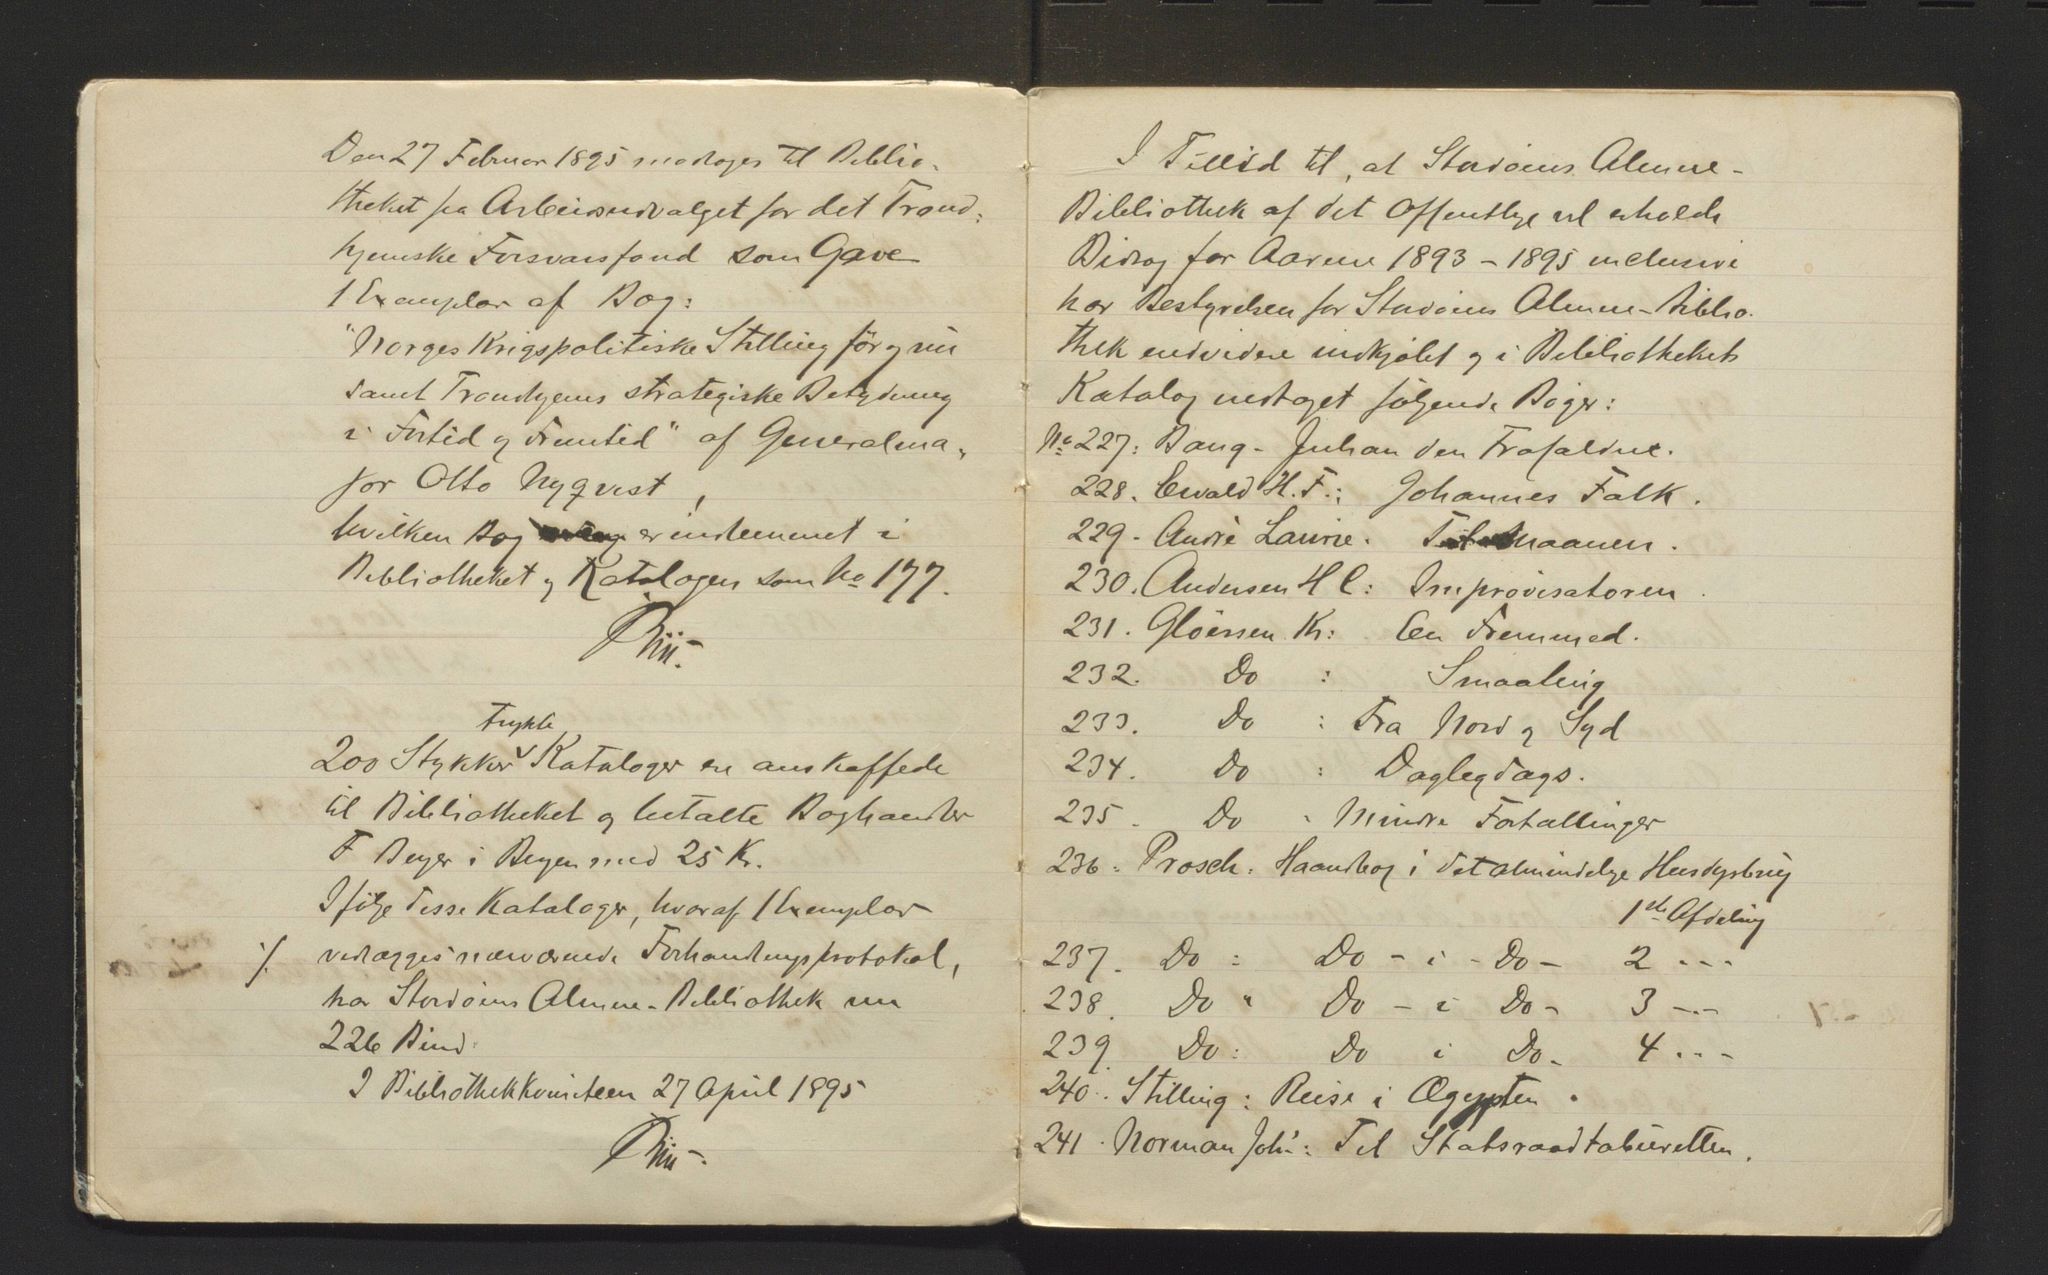 Den 27 Februar 1895 modtoges til Biblio-
theket fra Arbeidsudvalget for det Trond-
hjemske Forsvarsfond som Gave
1 Exemplar af Bog:
"Norges Krigspolitiske Stilling før og nu
samt Trondhjems strategiske Betydning
i Fortid og Fremtid" af Generalma-
jor Otto Nyqvist,
hvilken Bog er indlemmet i
Bibliotheket og Katalogen som No 177.
200 Stykker trykte Kataloger er anskaffede
til Bibliotheket og betalte Boghandler
F Beyer i Bergen med 25 Kr.
Ifølge disse Kataloger, hvoraf 1 Exemplar
./. vedlægges nærværende Forhandlingsprotokol,
har Stordøens Almue-Bibliothek nu
226 Bind.
I Bibliothekkomiteen 27 April 1895
I Tillid til, at Stordøens Almue-
Bibliothek af det Offentlige vil erholde
Bidrag for Aarene 1893 - 1895 inclusive
har Bestyrelsen for Stordøens Almue-Biblio-
thek endvidere indkjøbt og i Bibliothekets
Katalog indtaget følgende Bøger:
No 227: Bang - Julian den Frafaldne.
228. Ewald H. F.: Johannes Falk.
229. André Laurie. Til Maanen.
230. Andersen H C: Improvisatoren.
231. Gløersen Kr: En Fremmed.
232. Do : Smaating
233. Do : Fra Nord og Syd
234. Do : Daglegdags.
235. Do : Mindre Fortællinger
236. Prosch. Haandbog i det almindelige Husdyrbrug
1ste Afdeling
237. Do : Do - i - Do - 2 - - -
238. Do " Do - i Do - 3 - - -
239. Do: Do i Do - 4 - - -
240. Stilling: Reise i Ægypten.
241. Norman Joh.: Til Statsraadtabouretten.